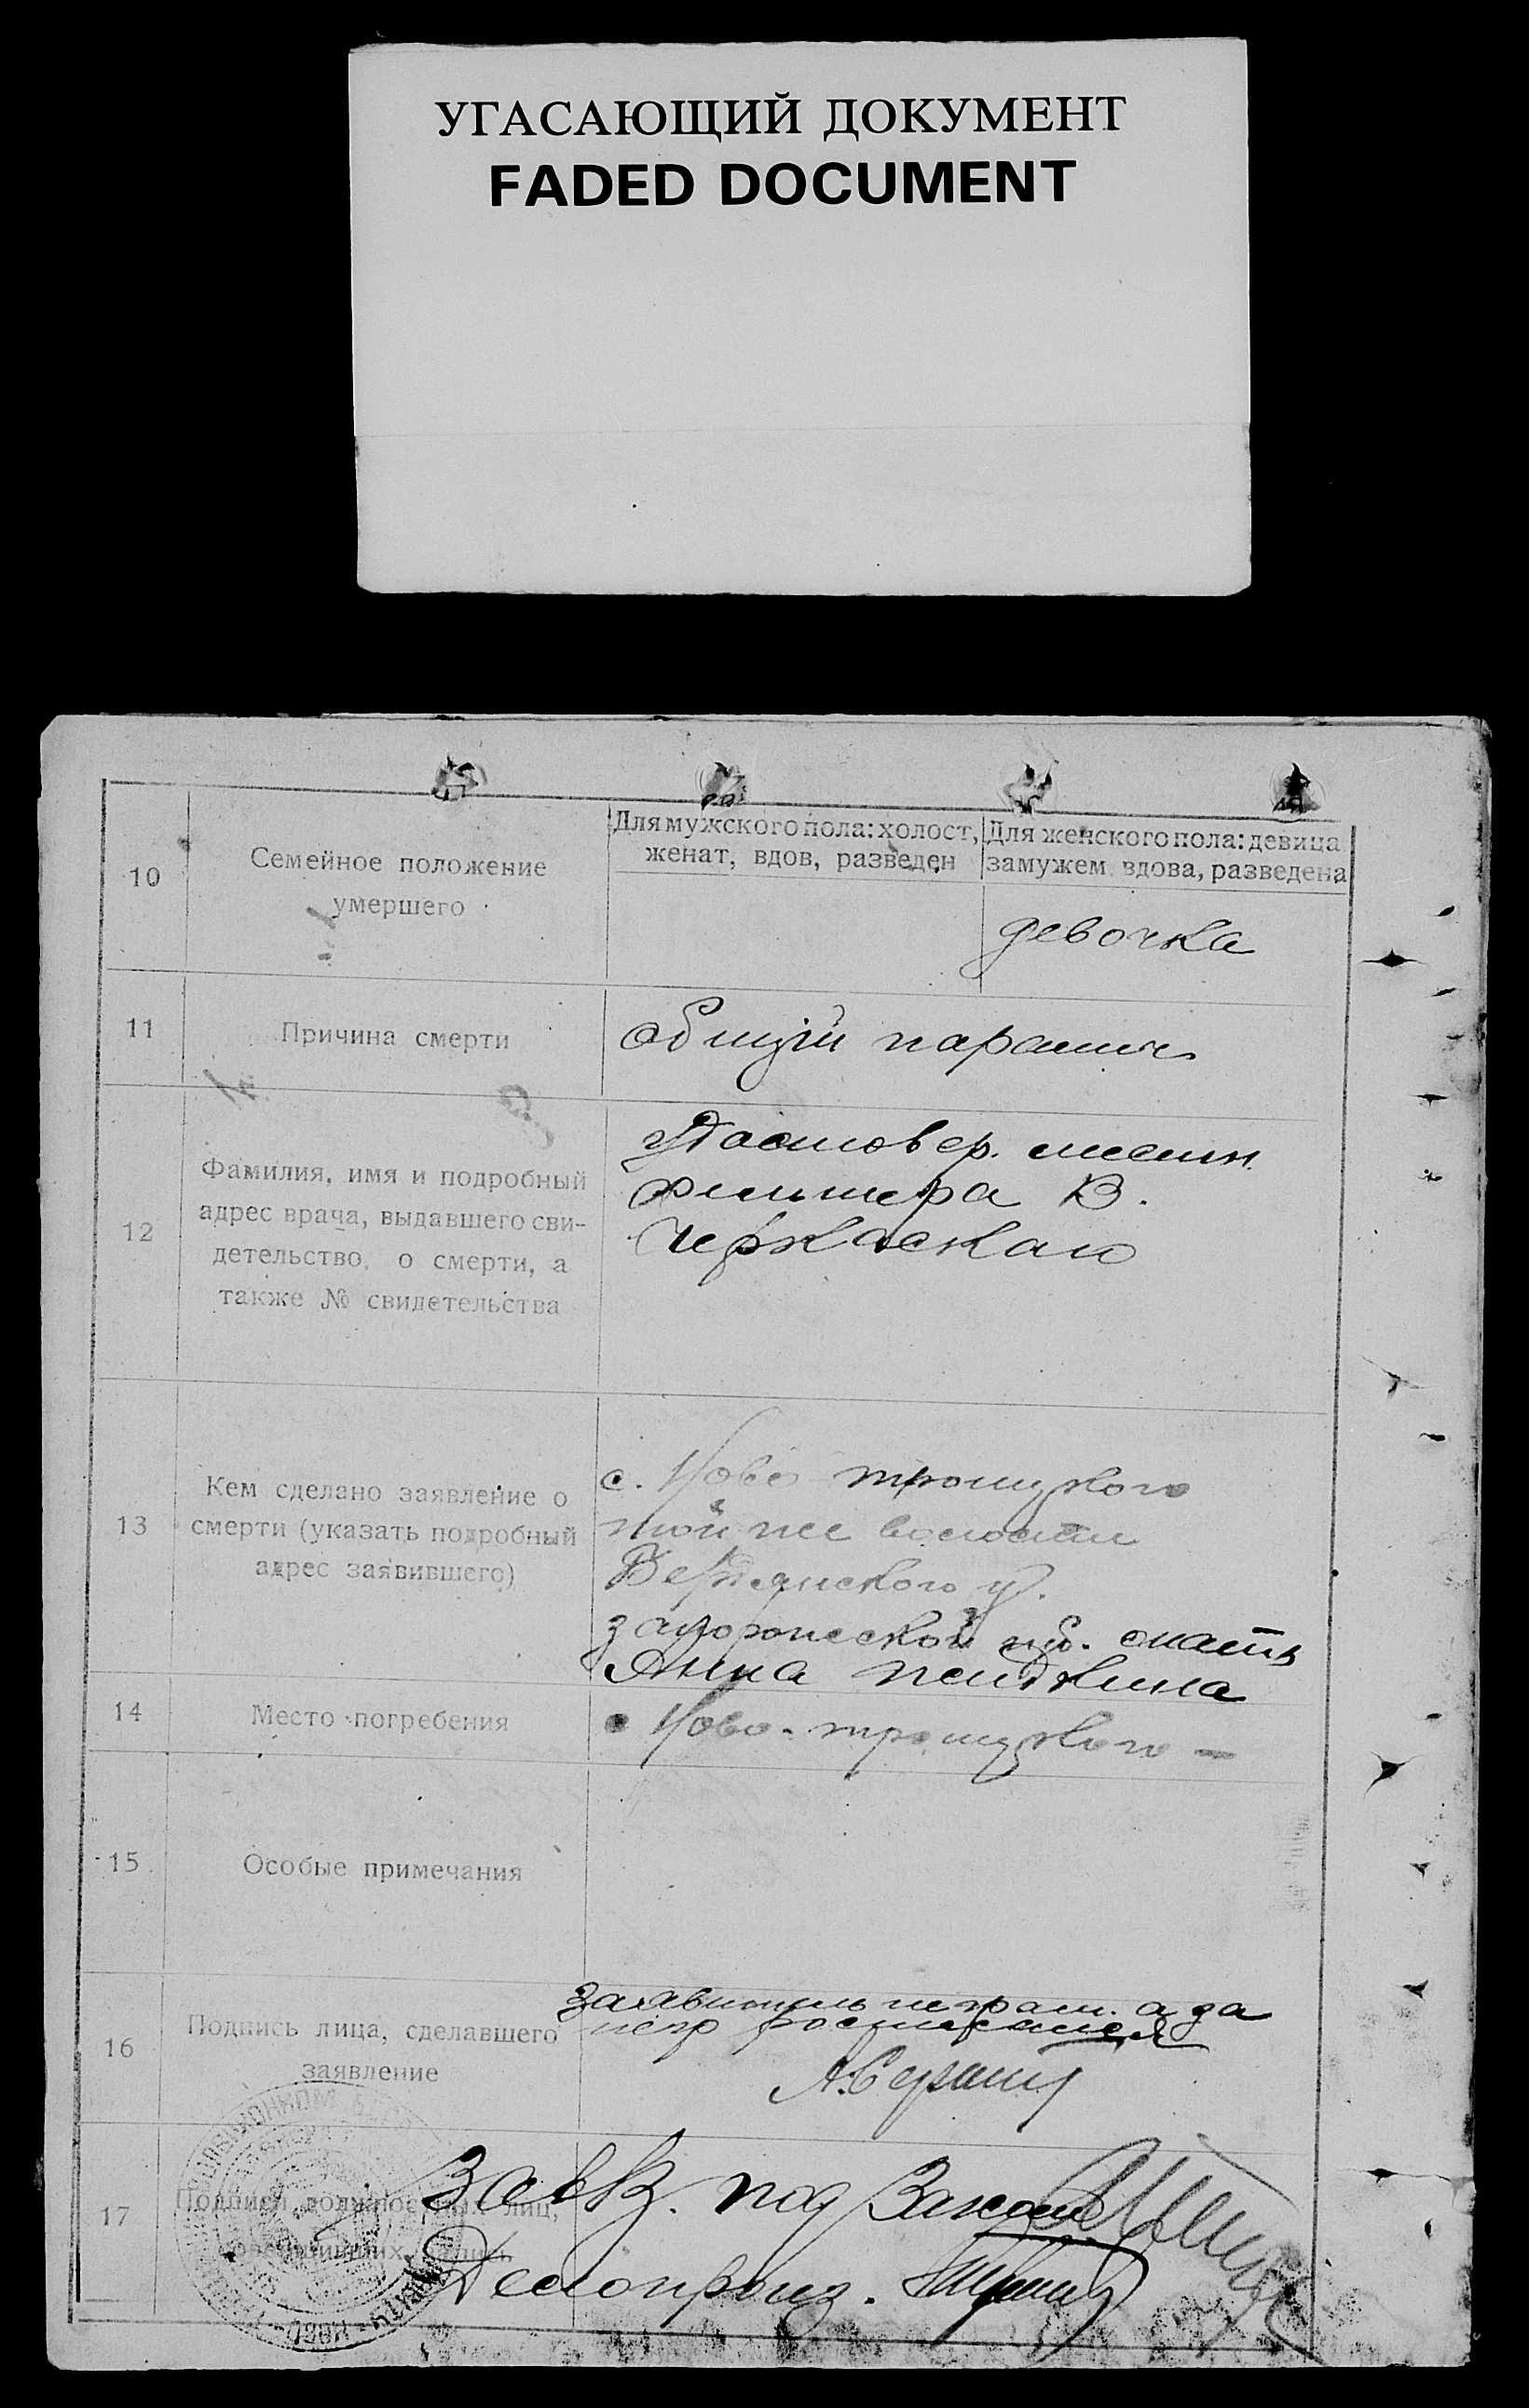 УГАСАЮЩИЙ ДОКУМЕНТ
FADED DOCUMENT
10
Семейное положение
умершего
Для мужского пола: холост,
женат, вдов, разведен
Для женского пола: девица
замужем вдова, разведена
девочка
11
Причина смерти
общий паралич
12
Фамилия, имя и подробный
адрес врача, выдавшего сви-
детельство, о смерти, а
также № свидетельства
Удостовер.
В.
Черкаскаго
13
Кем сделано заявление о
смерти (указать подробный
адрес заявившего)
с. Ново троицкого
той же волости
Бердянского у.
запорожской губ. мать
Анна
14
Место погребения
Ново-троицкого
15
Особые примечания
16
Подпись лица, сделавшего
заявление
Заявитель неграм. а за
негр расписался
17
Подписи должностных лиц,
совершивших запись
Завед. под
Делопроиз.